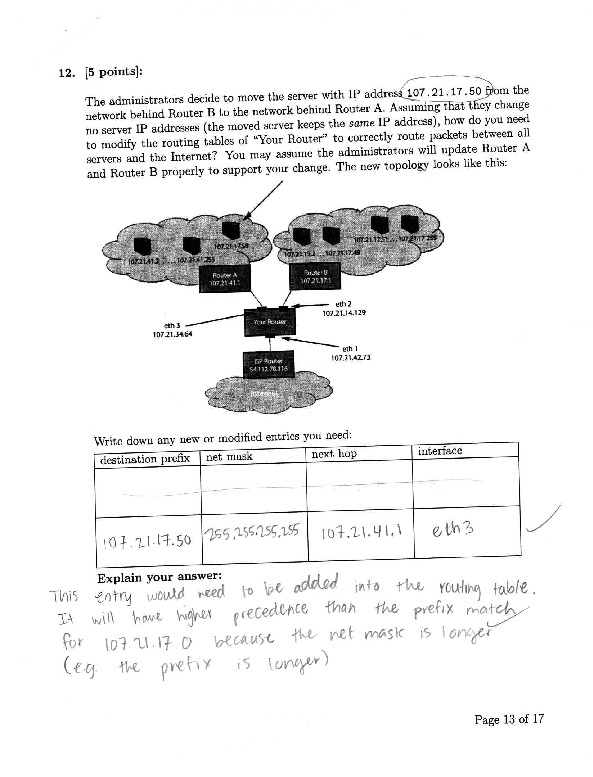 12. [5 points]:
The administrators decide to move the server with IP address 107.21.17.50 from the
network behind Router B to the network behind Router A. Assuming that they change
no server IP addresses (the moved server keeps the same IP address), how do you need
to modify the routing tables of "Your Router" to correctly route packets between all
servers and the Internet? You may assume the administrators will update Router A
and Router B properly to support your change. The new topology looks like this:
107.21.17.50
107.21.41.2 ... 107.21.41.255
107.21.17.51 ... 107.21.17.255
107.21.17.2 ... 107.21.17.49
Router A
107.21.41.1
Router B
107.21.17.1
eth 2
107.21.14.129
Your Router
eth 3
107.21.34.64
eth 1
107.21.42.73
ISP Router
54.112.76.116
Internet
Write down any new or modified entries you need:
destination prefix net musk next hop interface
107.21.17.50 255.255.255.255 107.21.41.1 eth3
Explain your answer:
This entry would need to be added into the routing table.
It will have higher precedence than the prefix match
for 107 21.17 0 because the net mask is longer
(e.g. the prefix is longer)
Page 13 of 17